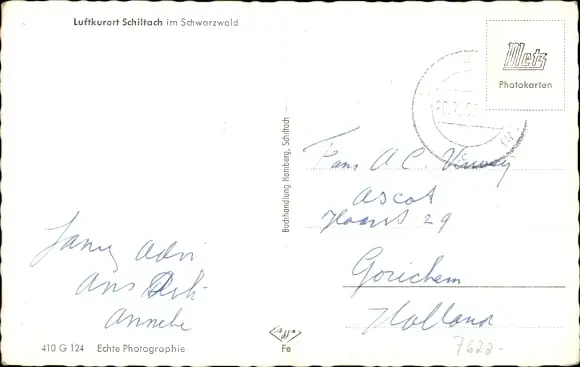 Luftkurort Schiltach im Schwarzwald
Metz
Photokarten
Buchhandlung Homberg, Schiltach
Fam A.C.
Ascot
29
Gorichem
Holland
7622-
Jany Adri
Ans Dik
Anneke
410 G 124 Echte Photographie
Fe